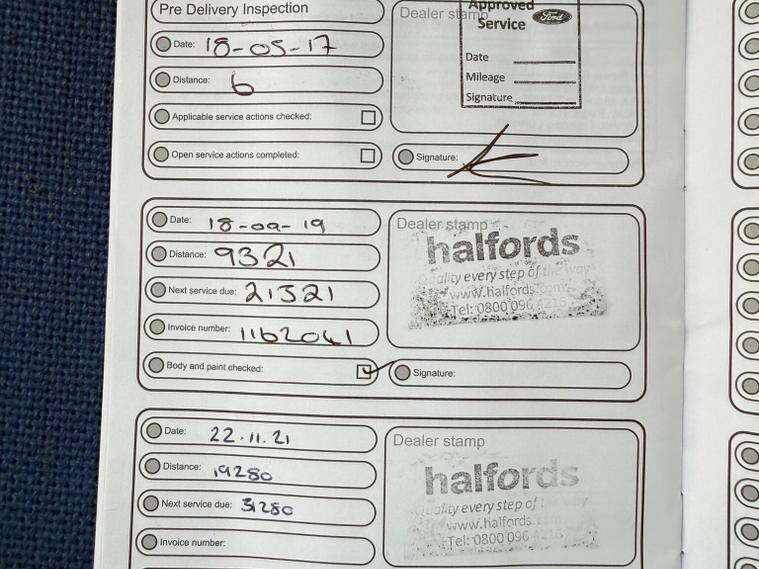 Pre Delivery Inspection
Date: 18-05-17
Distance: 6
Applicable service actions checked:
Open service actions completed:
Dealer stamp
Approved
Service
Ford
Date
Mileage
Signature
Signature:
Date: 18-09-19
Distance: 9321
Next service due: 21321
Invoice number: 1162041
Body and paint checked:
Dealer stamp
halfords
Quality every step of the way
www.halfords.com
Tel: 0800 096 4216
Signature:
Date: 22.11.21
Distance: 19280
Next service due: 31280
Invoice number:
Dealer stamp
halfords
Quality every step of the way
www.halfords.com
Tel: 0800 096 4216